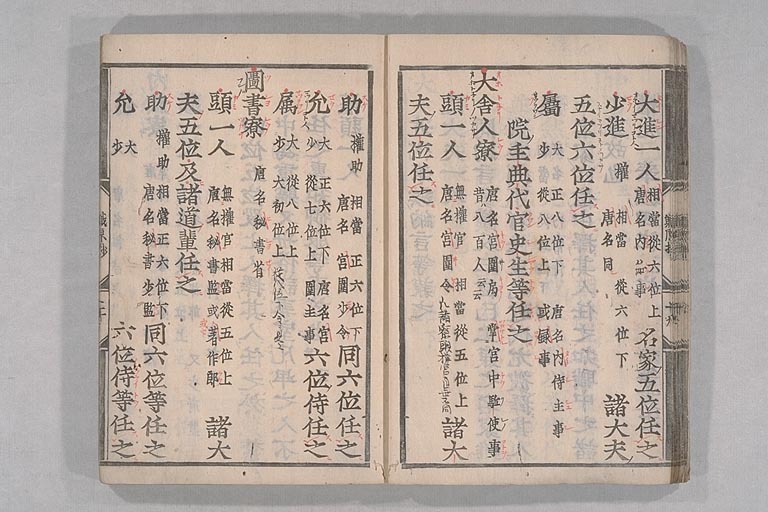 大進一人 相當從六位上 唐名内給事 名家五位任之
少進 權 相當 從六位下 唐名同 諸大夫
五位六位任之
屬 大 正八位下 唐名内侍主事
少 從八位上 或錄事
院主典代官史生等任之
大舎人寮 唐名宮圍局 掌宮中駈使事
昔八百人云云
頭一人 無權官 相當從五位上
唐名宮圍令 諸大
夫五位任之
助 權助 相當 正六位下
唐名 宮圍少令 同六位任之
允 大 正六位下 唐名宮
少 從七位上 圍主事 六位侍任之
属 大 從八位上
少 大初位上
圖書寮 唐名秘書省
頭一人 無權官相當從五位上
唐名秘書監或著作郎 諸大
夫五位及諸道輩任之
助 權助 相當正六位下
唐名秘書少監 同六位等任之
允 大
少 六位侍等任之
職原抄